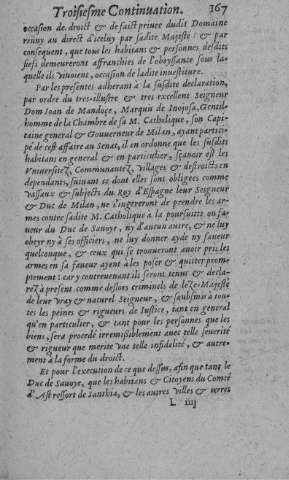 Troisiesme Continuation. 367
occasion de droict & de faict privee dudit Domaine
reüny au direct d'iceluy par sadite Majesté : & par
consequent, que tous les habitans & personnes desdits
fiefs demeureront affranchies de l'obeyssance sous la-
quelle ils vivoient, occasion de ladite investiture.
Par les presentes adherant à la susdite declaration,
par ordre du tres-illustre & tres excellent Seigneur
Dom Ioan de Mandoçe, Marquis de Inojosa, Gentil-
homme de la Chambre de sa M. Catholique, son Capi-
taine general & Gouverneur de Milan, ayant partici-
pé de cest affaire au Senat, il en ordonne que les susdits
habitans en general & en particulier, sçavoir est les
Vniversitez, Communautez, Villages & destroicts en
dependants, suivant ce dont elles sont obligees comme
vassaux & subjects du Roy d'Espagne leur Seigneur
& Duc de Milan, ne s'ingereront de prendre les ar-
mes contre sadite M. Catholique à la poursuitte ou fa-
veur du Duc de Savoye, ny d'aucun autre, & ne luy
obeyr ny à ses officiers, ne luy donner ayde ny faveur
quelconque, & ceux qui se trouveront avoir pris les
armes en sa faveur ayent à les poser & quitter promp-
tement : car y contrevenant ils seront tenus & decla-
rez à present comme dessors criminels de leze-Majesté
de leur vray & naturel Seigneur, & sousmis à tou-
tes les peines & rigueurs de Iustice, tant en general
qu'en particulier, & tant pour les personnes que les
biens, sera procedé irremissiblement avec telle severité
& rigueur que merite vne telle infidelité, & autre-
ment à la forme du droict.
Et pour l'execution de ce que dessus, afin que tant le
Duc de Savoye, que les habitans & Citoyens du Comté
d'Ast ressort de Santhia, & les autres villes & terres
L iiij